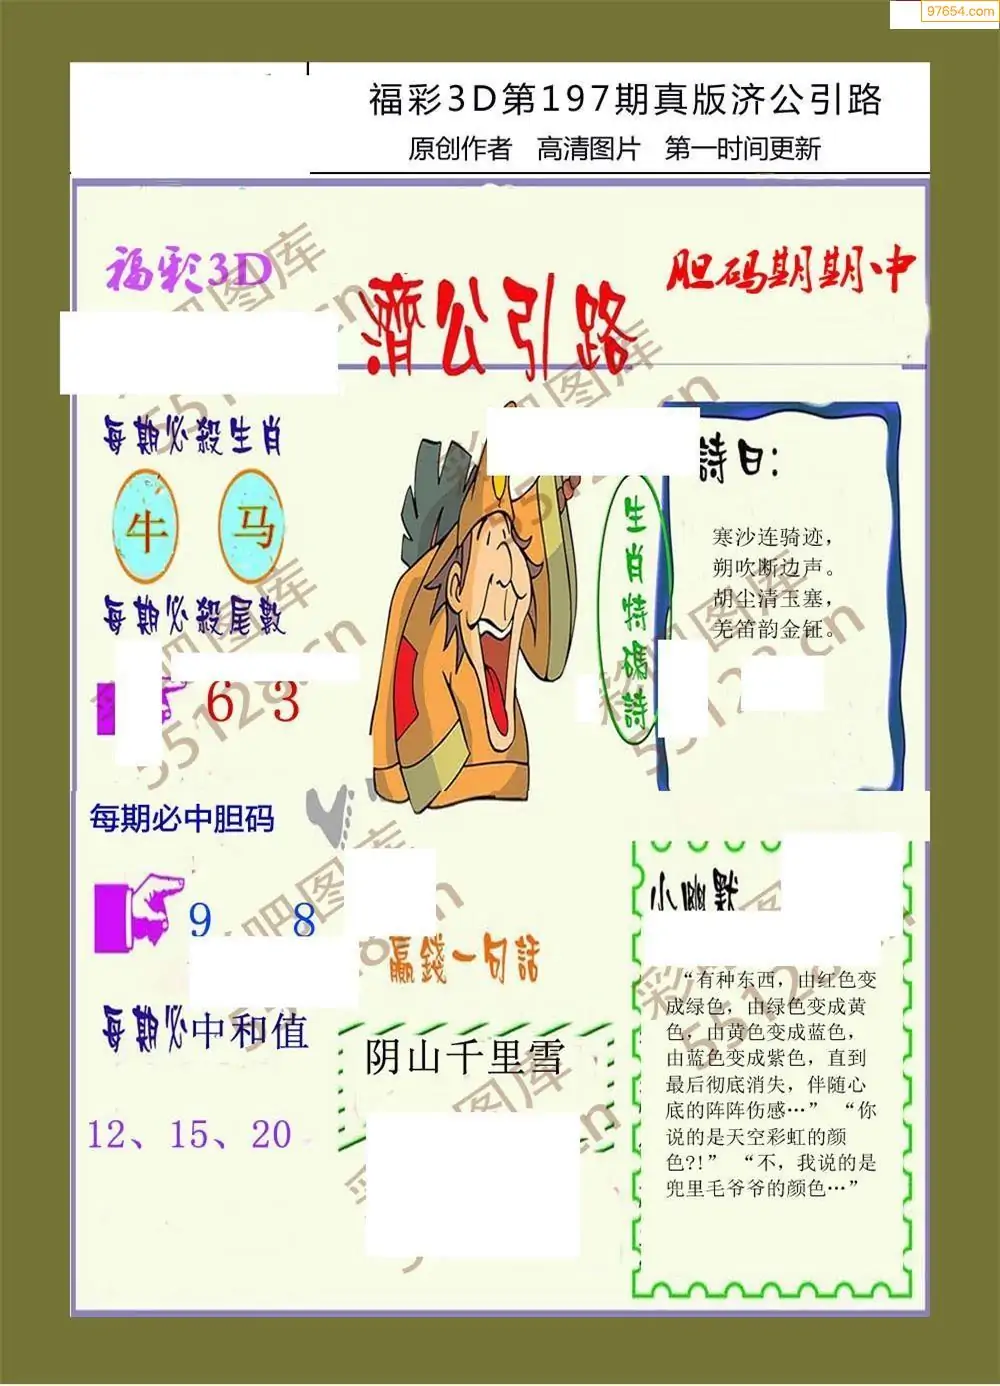 97654.com
福彩3D第197期真版济公引路
原创作者 高清图片 第一时间更新
福彩3D
胆码期期中
濟公引路
每期必殺生肖
牛 马
每期必殺尾數
6 3
每期必中胆码
9 8
每期必中和值
12、15、20
生肖特碼詩
詩曰:
寒沙连骑迹，
朔吹断边声。
胡尘清玉塞，
羌笛韵金钲。
贏錢一句話
阴山千里雪
小幽默
“有种东西，由红色变
成绿色，由绿色变成黄
色，由黄色变成蓝色，
由蓝色变成紫色，直到
最后彻底消失，伴随心
底的阵阵伤感…” “你
说的是天空彩虹的颜
色?!” “不，我说的是
兜里毛爷爷的颜色…”
彩吧图库
55128.cn